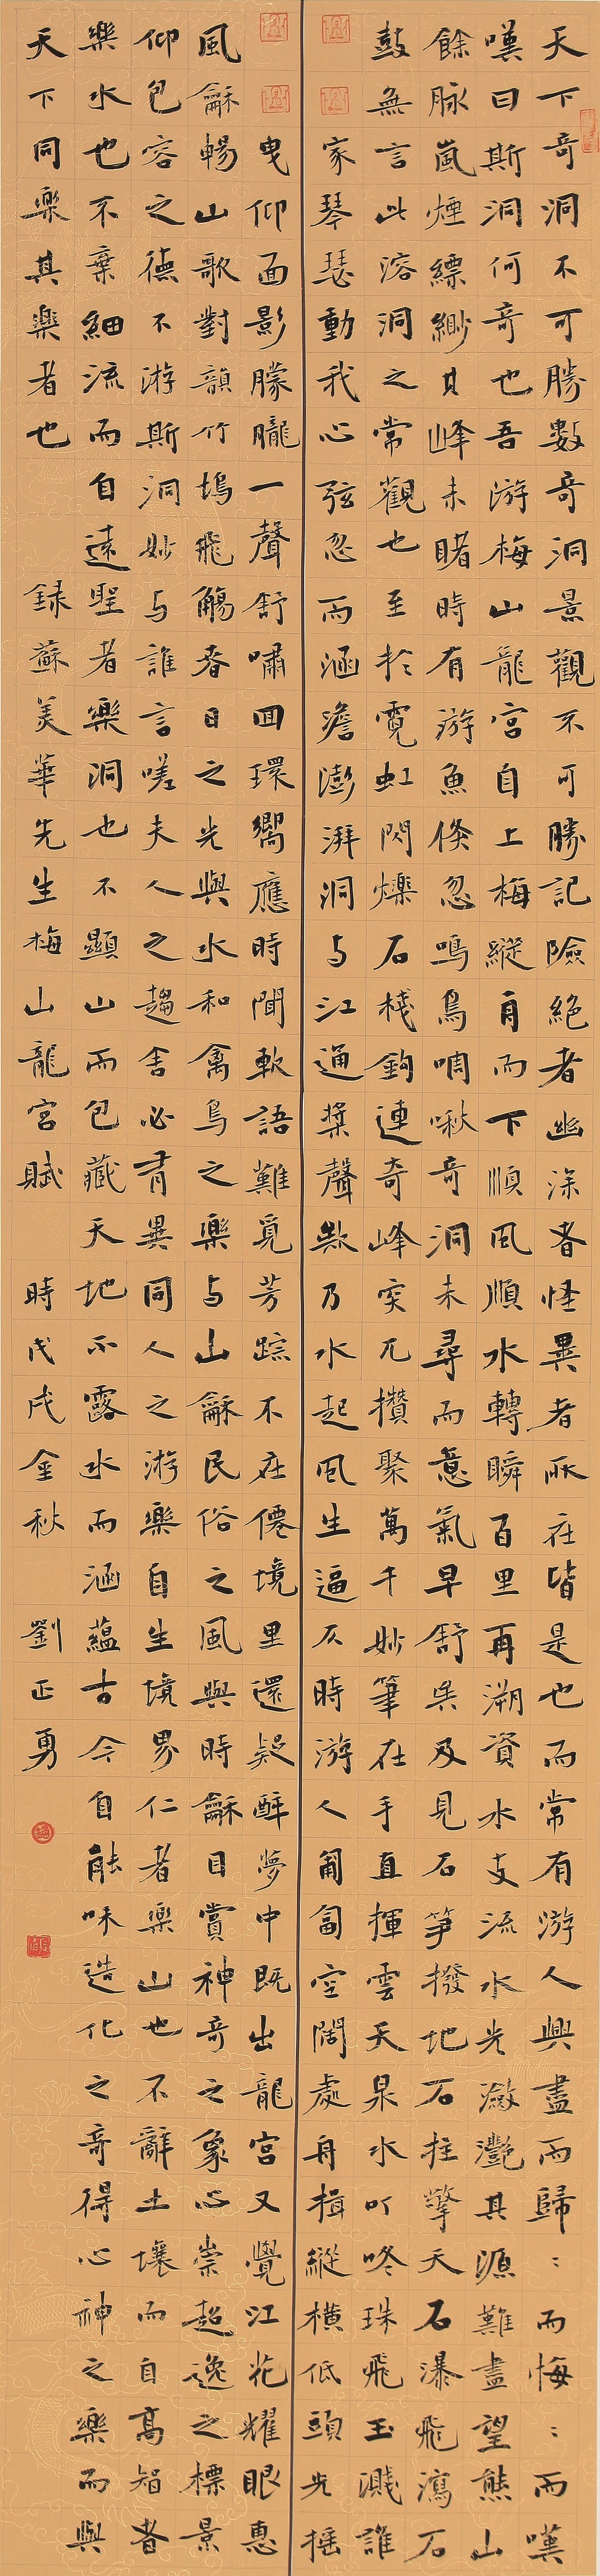 天下奇洞不可勝數奇洞景觀不可勝記險絕者幽深者怪異者所在皆是也而常有游人興盡而歸：而悔：而嘆
嘆曰斯洞何奇也吾游梅山龍宮自上梅縱舟而下順風順水轉瞬百里再溯資水支流水光瀲灩其源難盡望熊山
餘脉嵐煙縹緲其峰未睹時有游魚倏忽鳴鳥啁啾奇洞未尋而意氣早舒矣及見石笋撥地石柱擎天石瀑飛瀉石
鼓無言此溶洞之常觀也至於霓虹閃爍石棧鉤連奇峰突兀攢聚萬千妙筆在手直揮雲天泉水叮咚珠飛玉濺誰
家琴瑟動我心弦忽而涵澹澎湃洞与江通槳聲欸乃水起風生逼仄時游人匍匐空闊處舟楫縱橫低頭光摇
曳仰面影朦朧一聲舒嘯回環嚮應時聞軟語難覓芳踪不在僊境里還疑醉夢中既出龍宮又覺江花耀眼惠
風龢暢山歌對韻竹塢飛觴春日之光與水和禽鳥之樂与山龢民俗之風與時龢目賞神奇之象心崇超逸之標景
仰包容之德不游斯洞妙与誰言嗟夫人之趨舍必有異同人之游樂自生境界仁者樂山也不辭土壤而自高智者
樂水也不棄細流而自遠聖者樂洞也不顯山而包藏天地不露水而涵蘊古今自能味造化之奇得心神之樂而與
天下同樂其樂者也 録蘇美華先生梅山龍宮賦 時戊戌金秋 劉正勇